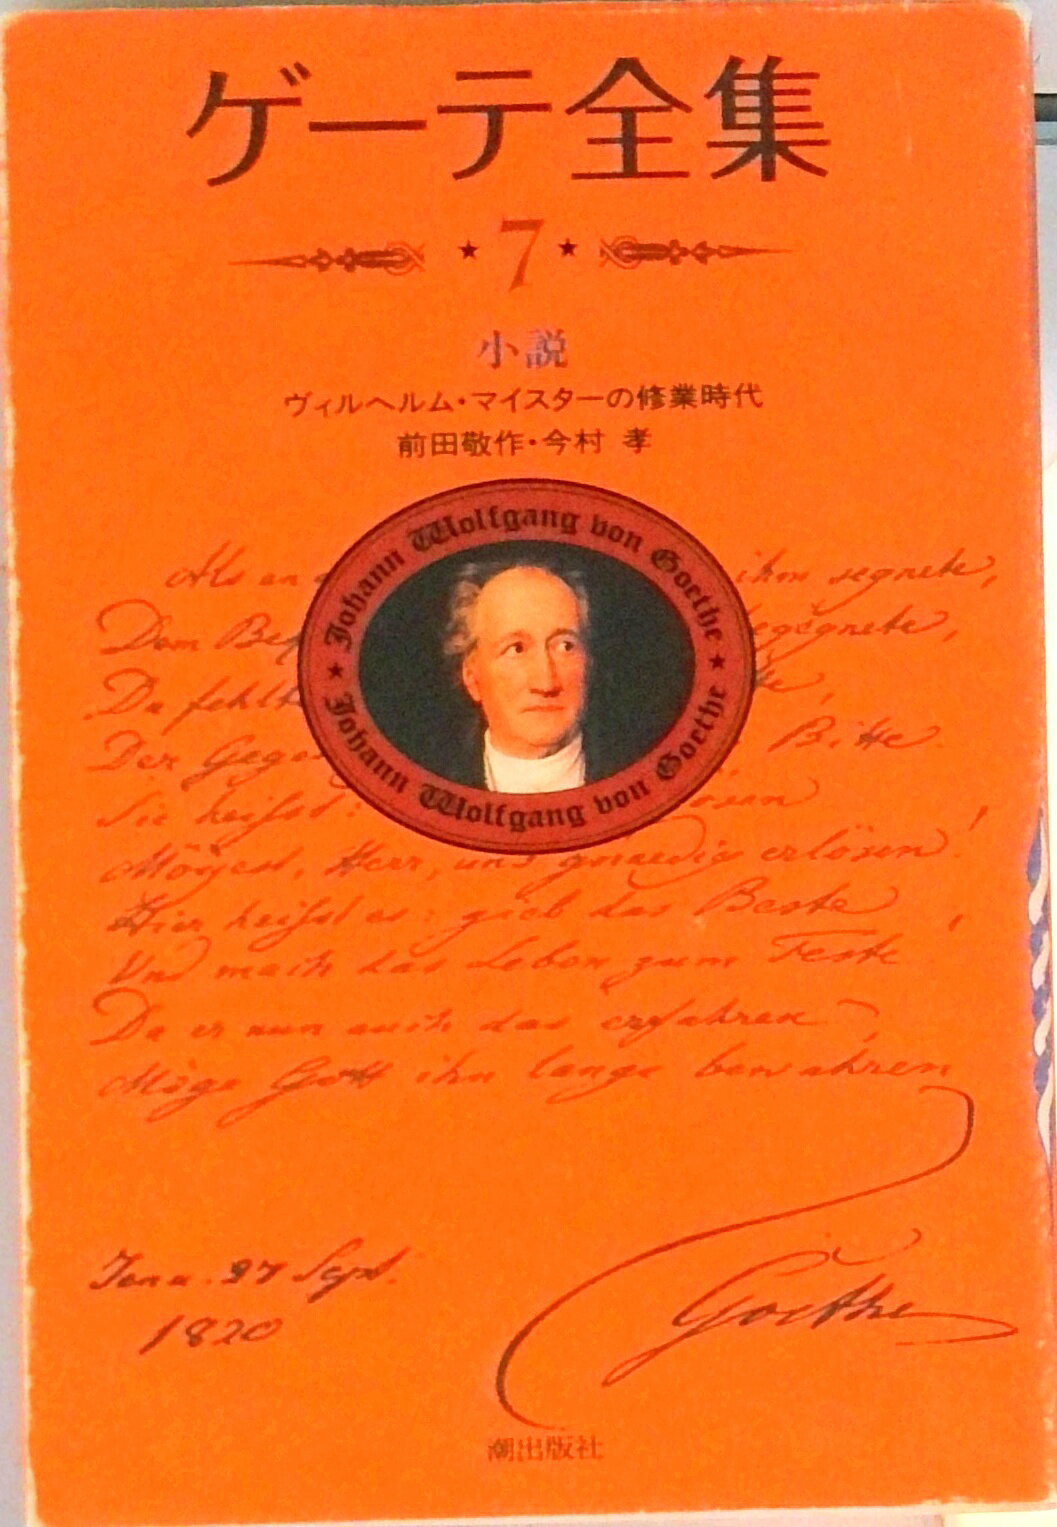 ゲーテ全集
★7★
小説
ヴィルヘルム・マイスターの修業時代
前田敬作・今村 孝
★ Johann Wolfgang von Goethe ★
Johann Wolfgang von Goethe
Als an ihm segnete,
Dem Be begegnete,
Da fehlt
Der Gege Bitte
Sie heifst:
Mögest, Herr, uns gnaedig erlösen!
Hier heifst es: gieb das Beste
Und mach das Leben zum Feste
Da er nun auch das erfahren,
Möge Gott ihn lange bewahren
Jena. 27 Sept.
1820
Goethe
潮出版社